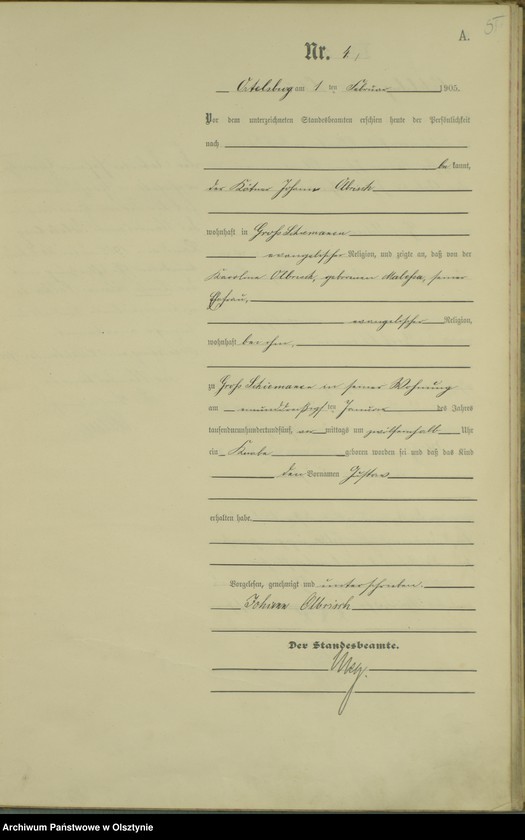 A.
Nr. 4,
Ortelsburg am 1 ten Februar 1905.
Vor dem unterzeichneten Standesbeamten erschien heute der Persönlichkeit
nach
be kannt,
der Kätner Johann Olbrisch
wohnhaft in Groß Schiemanen
evangelischer Religion, und zeigte an, daß von der
Karoline Olbrisch, geborenen seiner
Ehefrau,
evangelischer Religion,
wohnhaft bei ihm,
zu Groß Schiemanen in seiner Wohnung
am einunddreißigsten Januar des Jahres
tausendneunhundertundfünf, vor mittags um zwölfeinhalb Uhr
ein Knabe geboren worden sei und daß das Kind
den Vornamen Gustav
erhalten habe.
Vorgelesen, genehmigt und unterschrieben.
Johann Olbrisch
Der Standesbeamte.
Archiwum Państwowe w Olsztynie